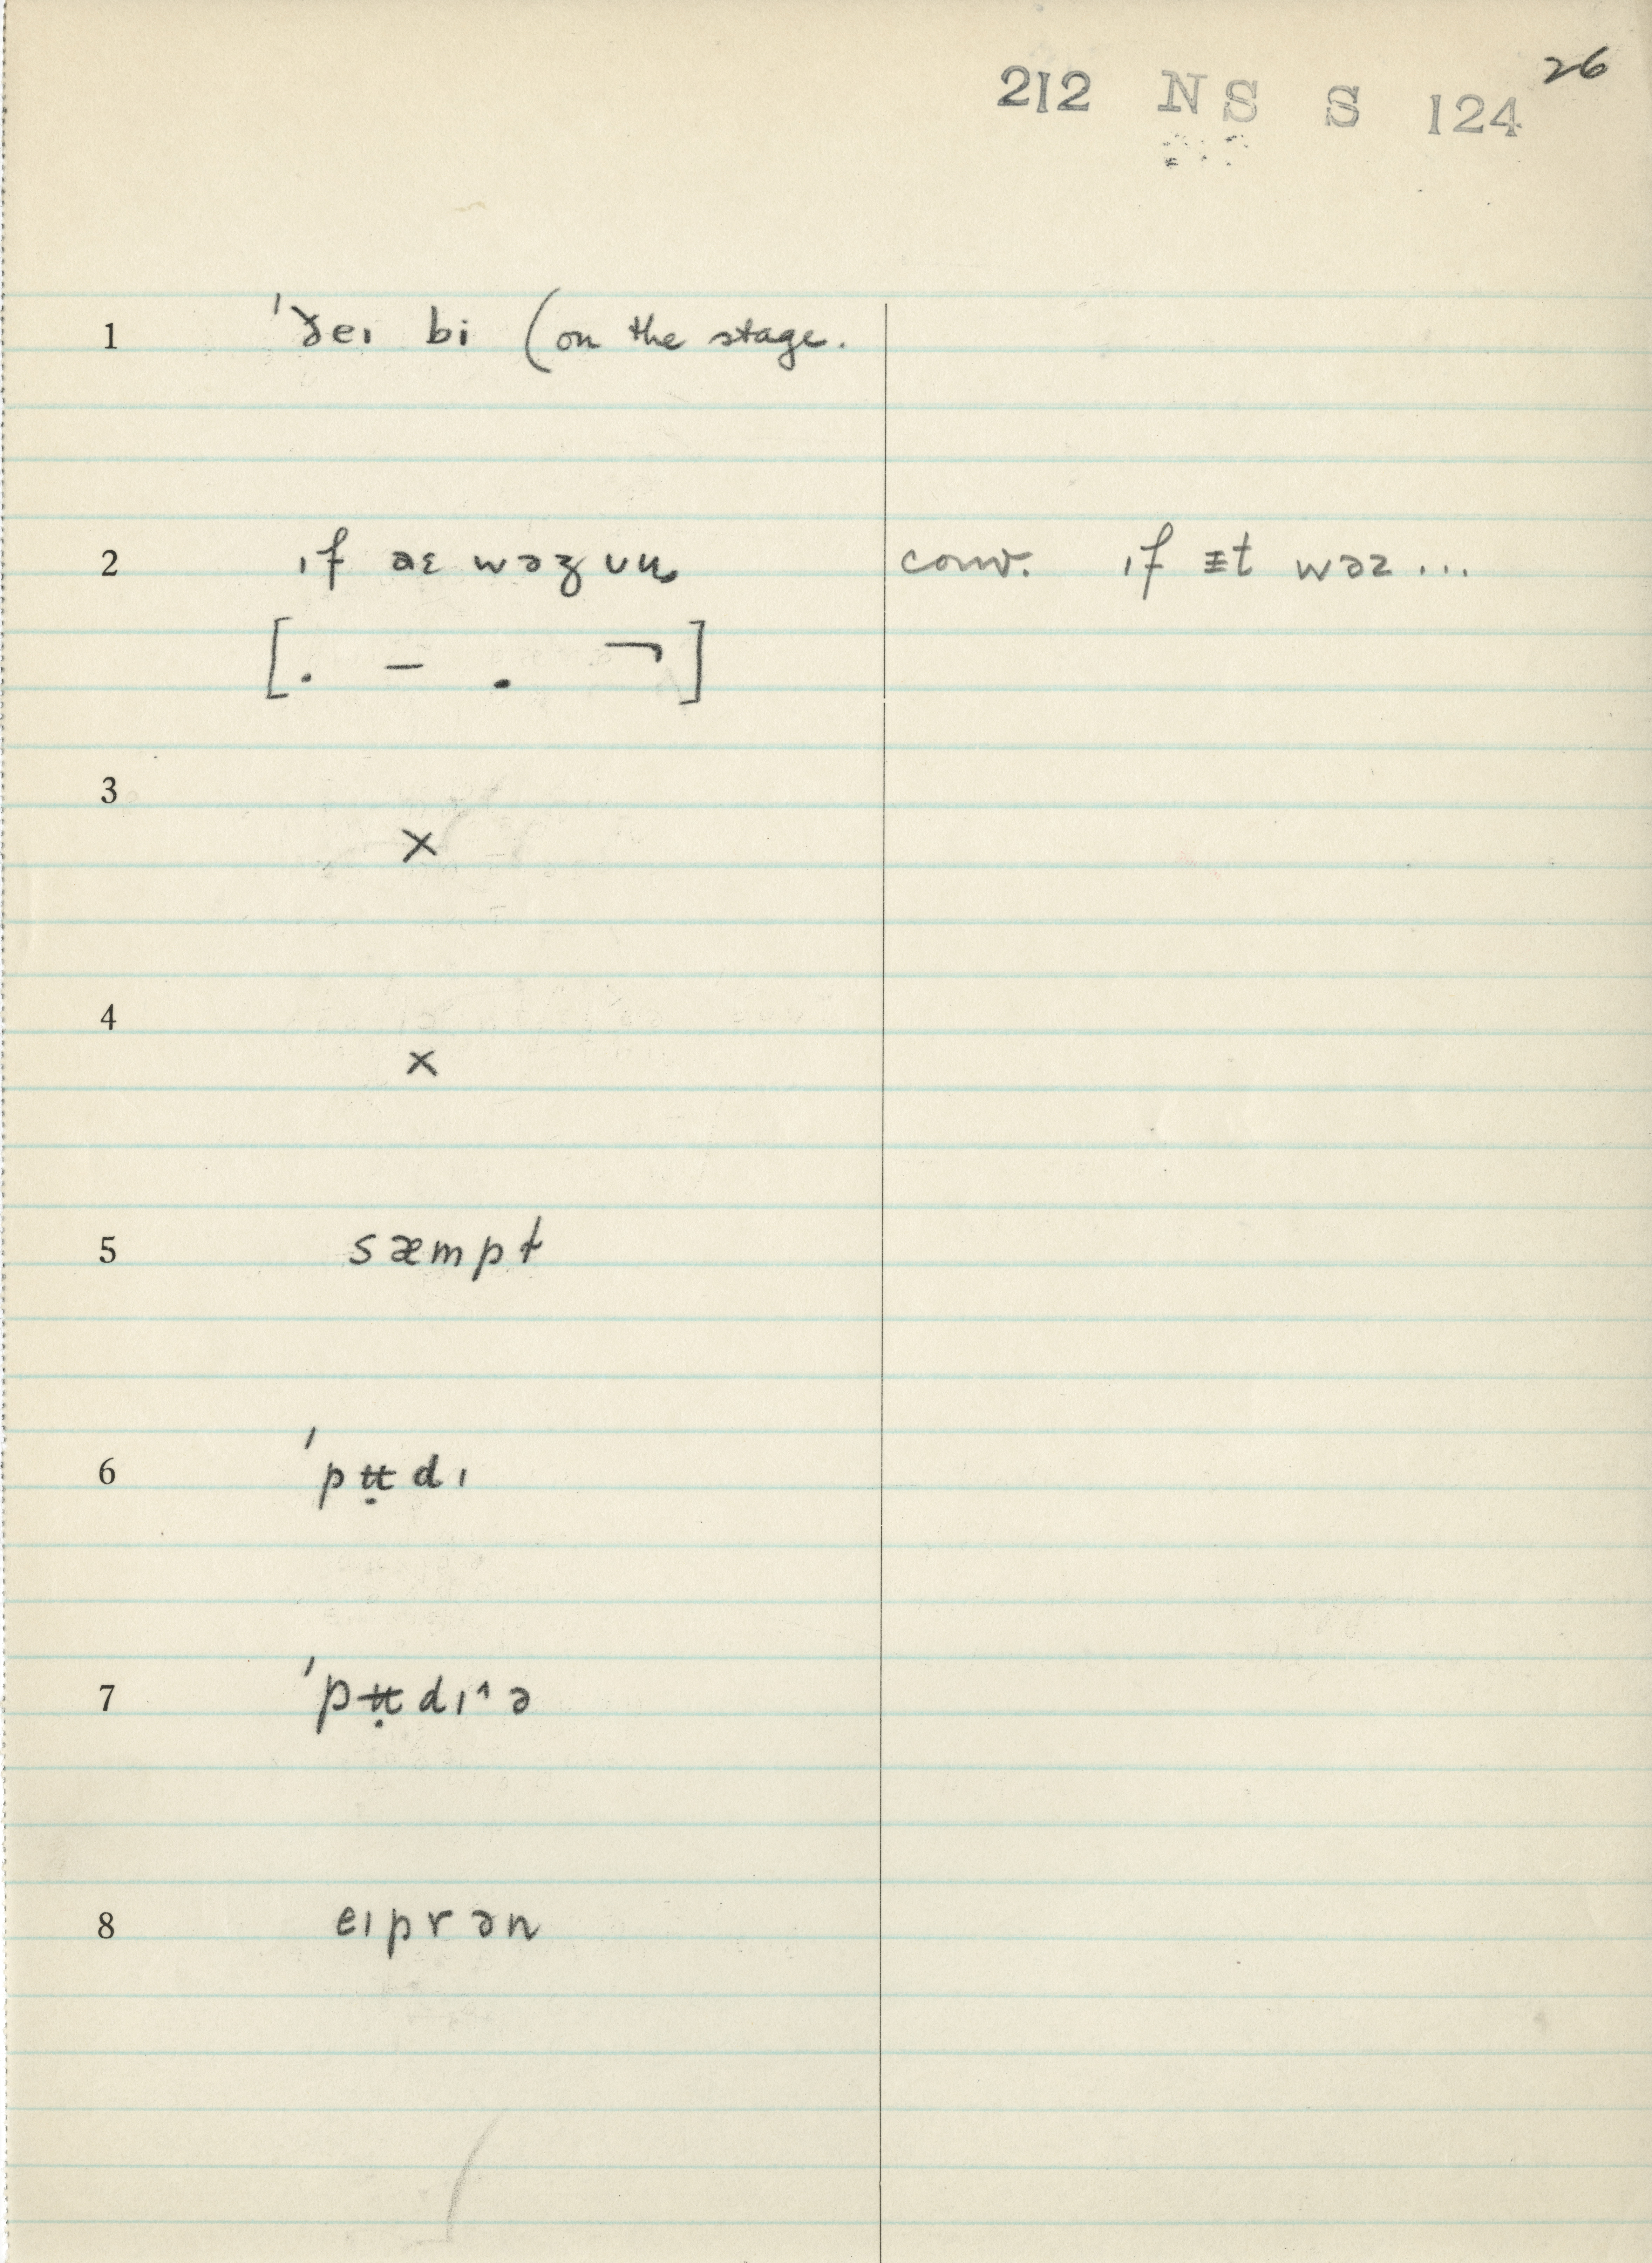 26
212 NS S 124
1 ˈðeɪ bi (on the stage.
2 ɪf wəz conv. ɪf ᵻt wəz ...
[. – . ¬]
3
×
4
×
5 sæmpt
6 ˈpʉ̣dɪ
7 ˈpʉ̣dɪ˄ə
8 eɪprən